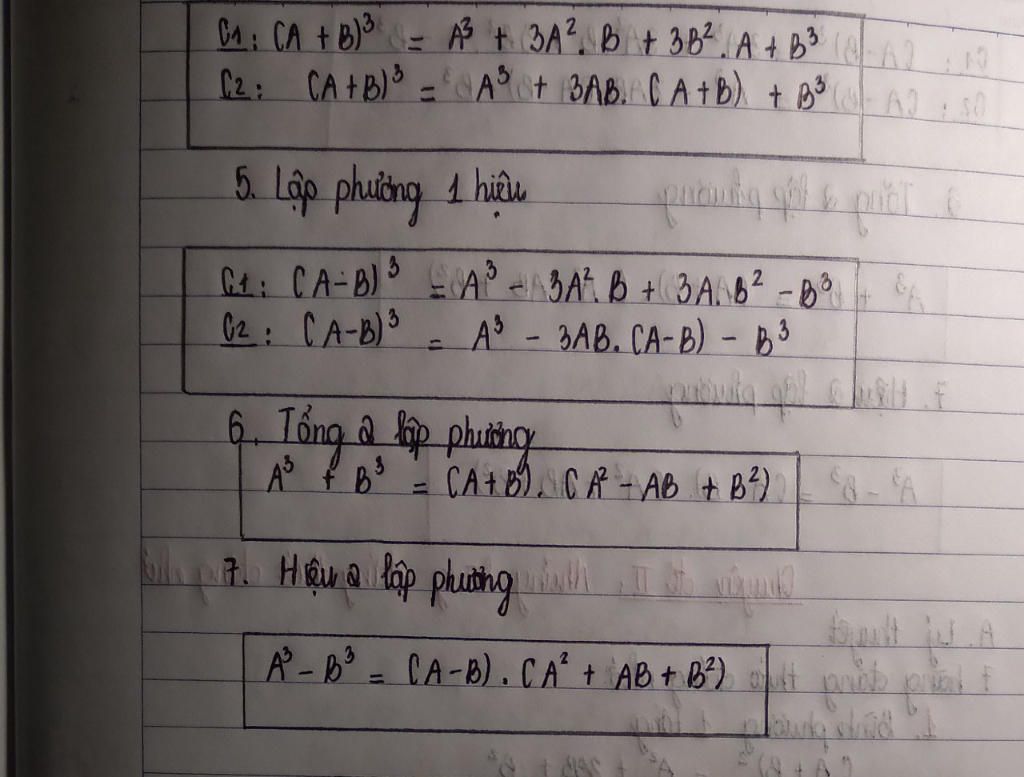 C1: (A + B)³ = A³ + 3A². B + 3B². A + B³
C2: (A+B)³ = A³ + 3AB. (A+B) + B³
5. Lập phương 1 hiệu
C1: (A-B)³ = A³ - 3A². B + 3A.B² - B³
C2: (A-B)³ = A³ - 3AB. (A-B) - B³
6. Tổng 2 lập phương
A³ + B³ = (A+B). (A² - AB + B²)
7. Hiệu 2 lập phương
A³ - B³ = (A-B). (A² + AB + B²)